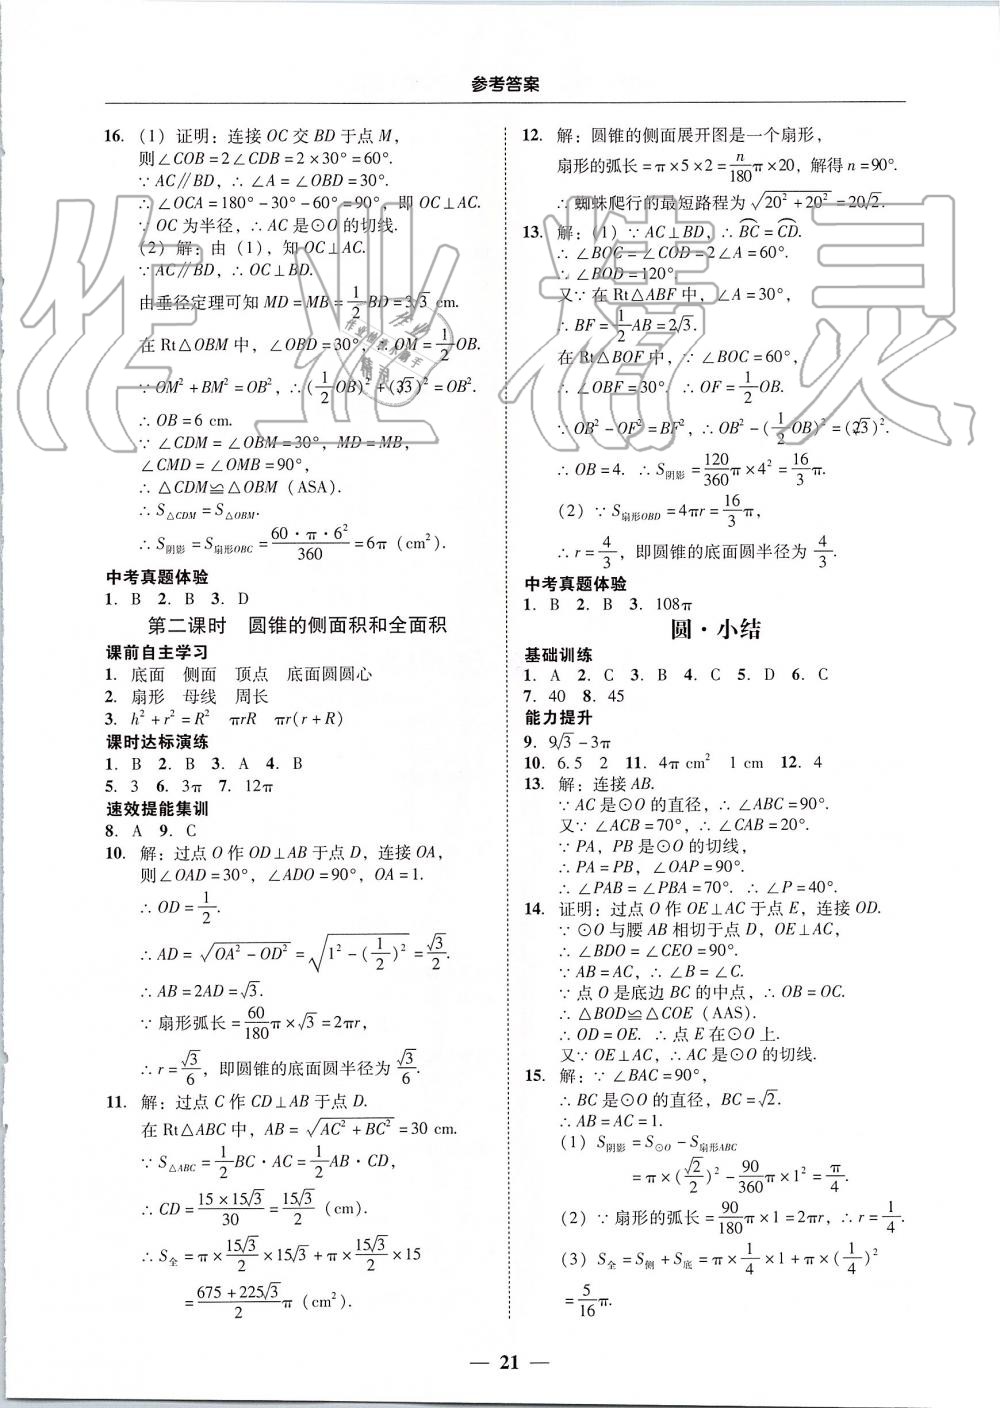 参考答案
16. (1) 证明：连接 OC 交 BD 于点 M，
则∠COB=2∠CDB=2×30°=60°.
∵AC∥BD，∴∠A=∠OBD=30°.
∴∠OCA=180°-30°-60°=90°，即 OC⊥AC.
∵OC 为半径，∴AC 是⊙O 的切线.
(2) 解：由 (1)，知 OC⊥AC.
∵AC∥BD，∴OC⊥BD.
由垂径定理可知 MD=MB=1/2BD=3√3 cm.
在 Rt△OBM 中，∠OBD=30°，∴OM=1/2OB.
∵OM²+BM²=OB²，∴(1/2OB)²+(3√3)²=OB².
∴OB=6 cm.
∵∠CDM=∠OBM=30°，MD=MB，
∠CMD=∠OMB=90°，
∴△CDM≌△OBM (ASA).
∴S△CDM=S△OBM.
∴S阴影=S扇形OBC=60·π·6²/360=6π (cm²).
中考真题体验
1. B 2. B 3. D
第二课时 圆锥的侧面积和全面积
课前自主学习
1. 底面 侧面 顶点 底面圆圆心
2. 扇形 母线 周长
3. h²+r²=R² πrR πr(r+R)
课时达标演练
1. B 2. B 3. A 4. B
5. 3 6. 3π 7. 12π
速效提能集训
8. A 9. C
10. 解：过点 O 作 OD⊥AB 于点 D，连接 OA，
则∠OAD=30°，∠ADO=90°，OA=1.
∴OD=1/2.
∴AD=√(OA²-OD²)=√(1²-(1/2)²)=√3/2.
∴AB=2AD=√3.
∵扇形弧长=60/180π×√3=2πr，
∴r=√3/6，即圆锥的底面圆半径为√3/6.
11. 解：过点 C 作 CD⊥AB 于点 D.
在 Rt△ABC 中，AB=√(AC²+BC²)=30 cm.
∵S△ABC=1/2BC·AC=1/2AB·CD，
∴CD=15×15√3/30=15√3/2 (cm).
∴S全=π×15√3/2×15√3+π×15√3/2×15
=(675+225√3)/2π (cm²).
12. 解：圆锥的侧面展开图是一个扇形，
扇形的弧长=π×5×2=n/180π×20，解得 n=90°.
∴蜘蛛爬行的最短路程为√(20²+20²)=20√2.
13. 解：(1) ∵AC⊥BD，∴BC⌒=CD⌒.
∴∠BOC=∠COD=2∠A=60°.
∴∠BOD=120°.
又∵在 Rt△ABF 中，∠A=30°，
∴BF=1/2AB=2√3.
在 Rt△BOF 中，∵∠BOC=60°，
∴∠OBF=30°. ∴OF=1/2OB.
∵OB²-OF²=BF²，∴OB²-(1/2OB)²=(2√3)².
∴OB=4. ∴S阴影=120/360π×4²=16/3π.
(2) ∵S扇形OBD=4πr=16/3π，
∴r=4/3，即圆锥的底面圆半径为4/3.
中考真题体验
1. B 2. B 3. 108π
圆·小结
基础训练
1. A 2. C 3. B 4. C 5. D 6. C
7. 40 8. 45
能力提升
9. 9√3-3π
10. 6.5 2 11. 4π cm² 1 cm 12. 4
13. 解：连接 AB.
∵AC 是⊙O 的直径，∴∠ABC=90°.
又∵∠ACB=70°，∴∠CAB=20°.
∵PA，PB 是⊙O 的切线，
∴PA=PB，∠OAP=90°.
∴∠PAB=∠PBA=70°. ∴∠P=40°.
14. 证明：过点 O 作 OE⊥AC 于点 E，连接 OD.
∵⊙O 与腰 AB 相切于点 D，OE⊥AC，
∴∠BDO=∠CEO=90°.
∵AB=AC，∴∠B=∠C.
∵点 O 是底边 BC 的中点，∴OB=OC.
∴△BOD≌△COE (AAS).
∴OD=OE. ∴点 E 在⊙O 上.
又∵OE⊥AC，∴AC 是⊙O 的切线.
15. 解：∵∠BAC=90°，
∴BC 是⊙O 的直径，BC=√2.
∴AB=AC=1.
(1) S阴影=S⊙O-S扇形ABC
=π×(√2/2)²-90/360π×1²=π/4.
(2) ∵扇形的弧长=90/180π×1=2πr，∴r=1/4.
(3) S全=S侧+S底=π×1/4×1+π×(1/4)²
=5/16π.
— 21 —
作业精灵